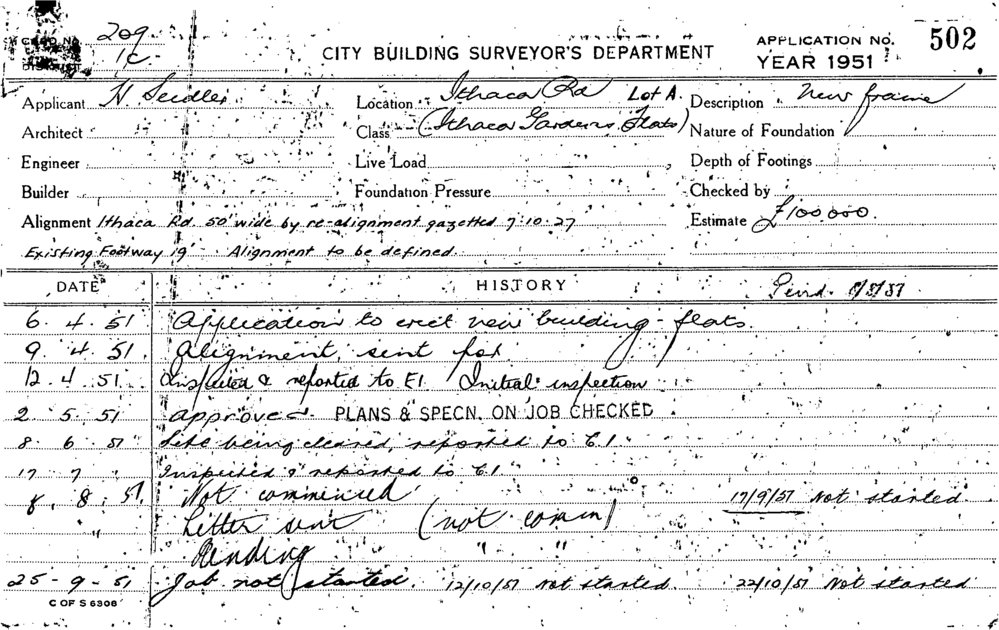 CARD No. 209
DISTRICT 1C
CITY BUILDING SURVEYOR'S DEPARTMENT
APPLICATION No. 502
YEAR 1951
Applicant H Seidler
Location Ithaca Rd Lot A.
Description New frame
Architect
Class (Ithaca Gardens Flats)
Nature of Foundation
Engineer
Live Load
Depth of Footings
Builder
Foundation Pressure
Checked by
Alignment Ithaca Rd. 50' wide by re-alignment gazetted 7.10.27
Estimate £100,000.
Existing Footway 19' Alignment to be defined.
DATE HISTORY
6.4.51 Application to erect new building - flats.
9.4.51. Alignment sent for
12.4.51. Inspected & reported to E1. Initial inspection
2.5.51 approved. PLANS & SPECN. ON JOB CHECKED
8.6.51 Site being cleared, reported to E.1.
17 7 " Inspected & reported to E1
8.8.51. Not commenced 17/9/51 Not started.
" Letter sent (not comm)
Pending " "
25-9-51 Job not started. 12/10/51 Not started. 22/10/51 Not started.
C OF S 6306